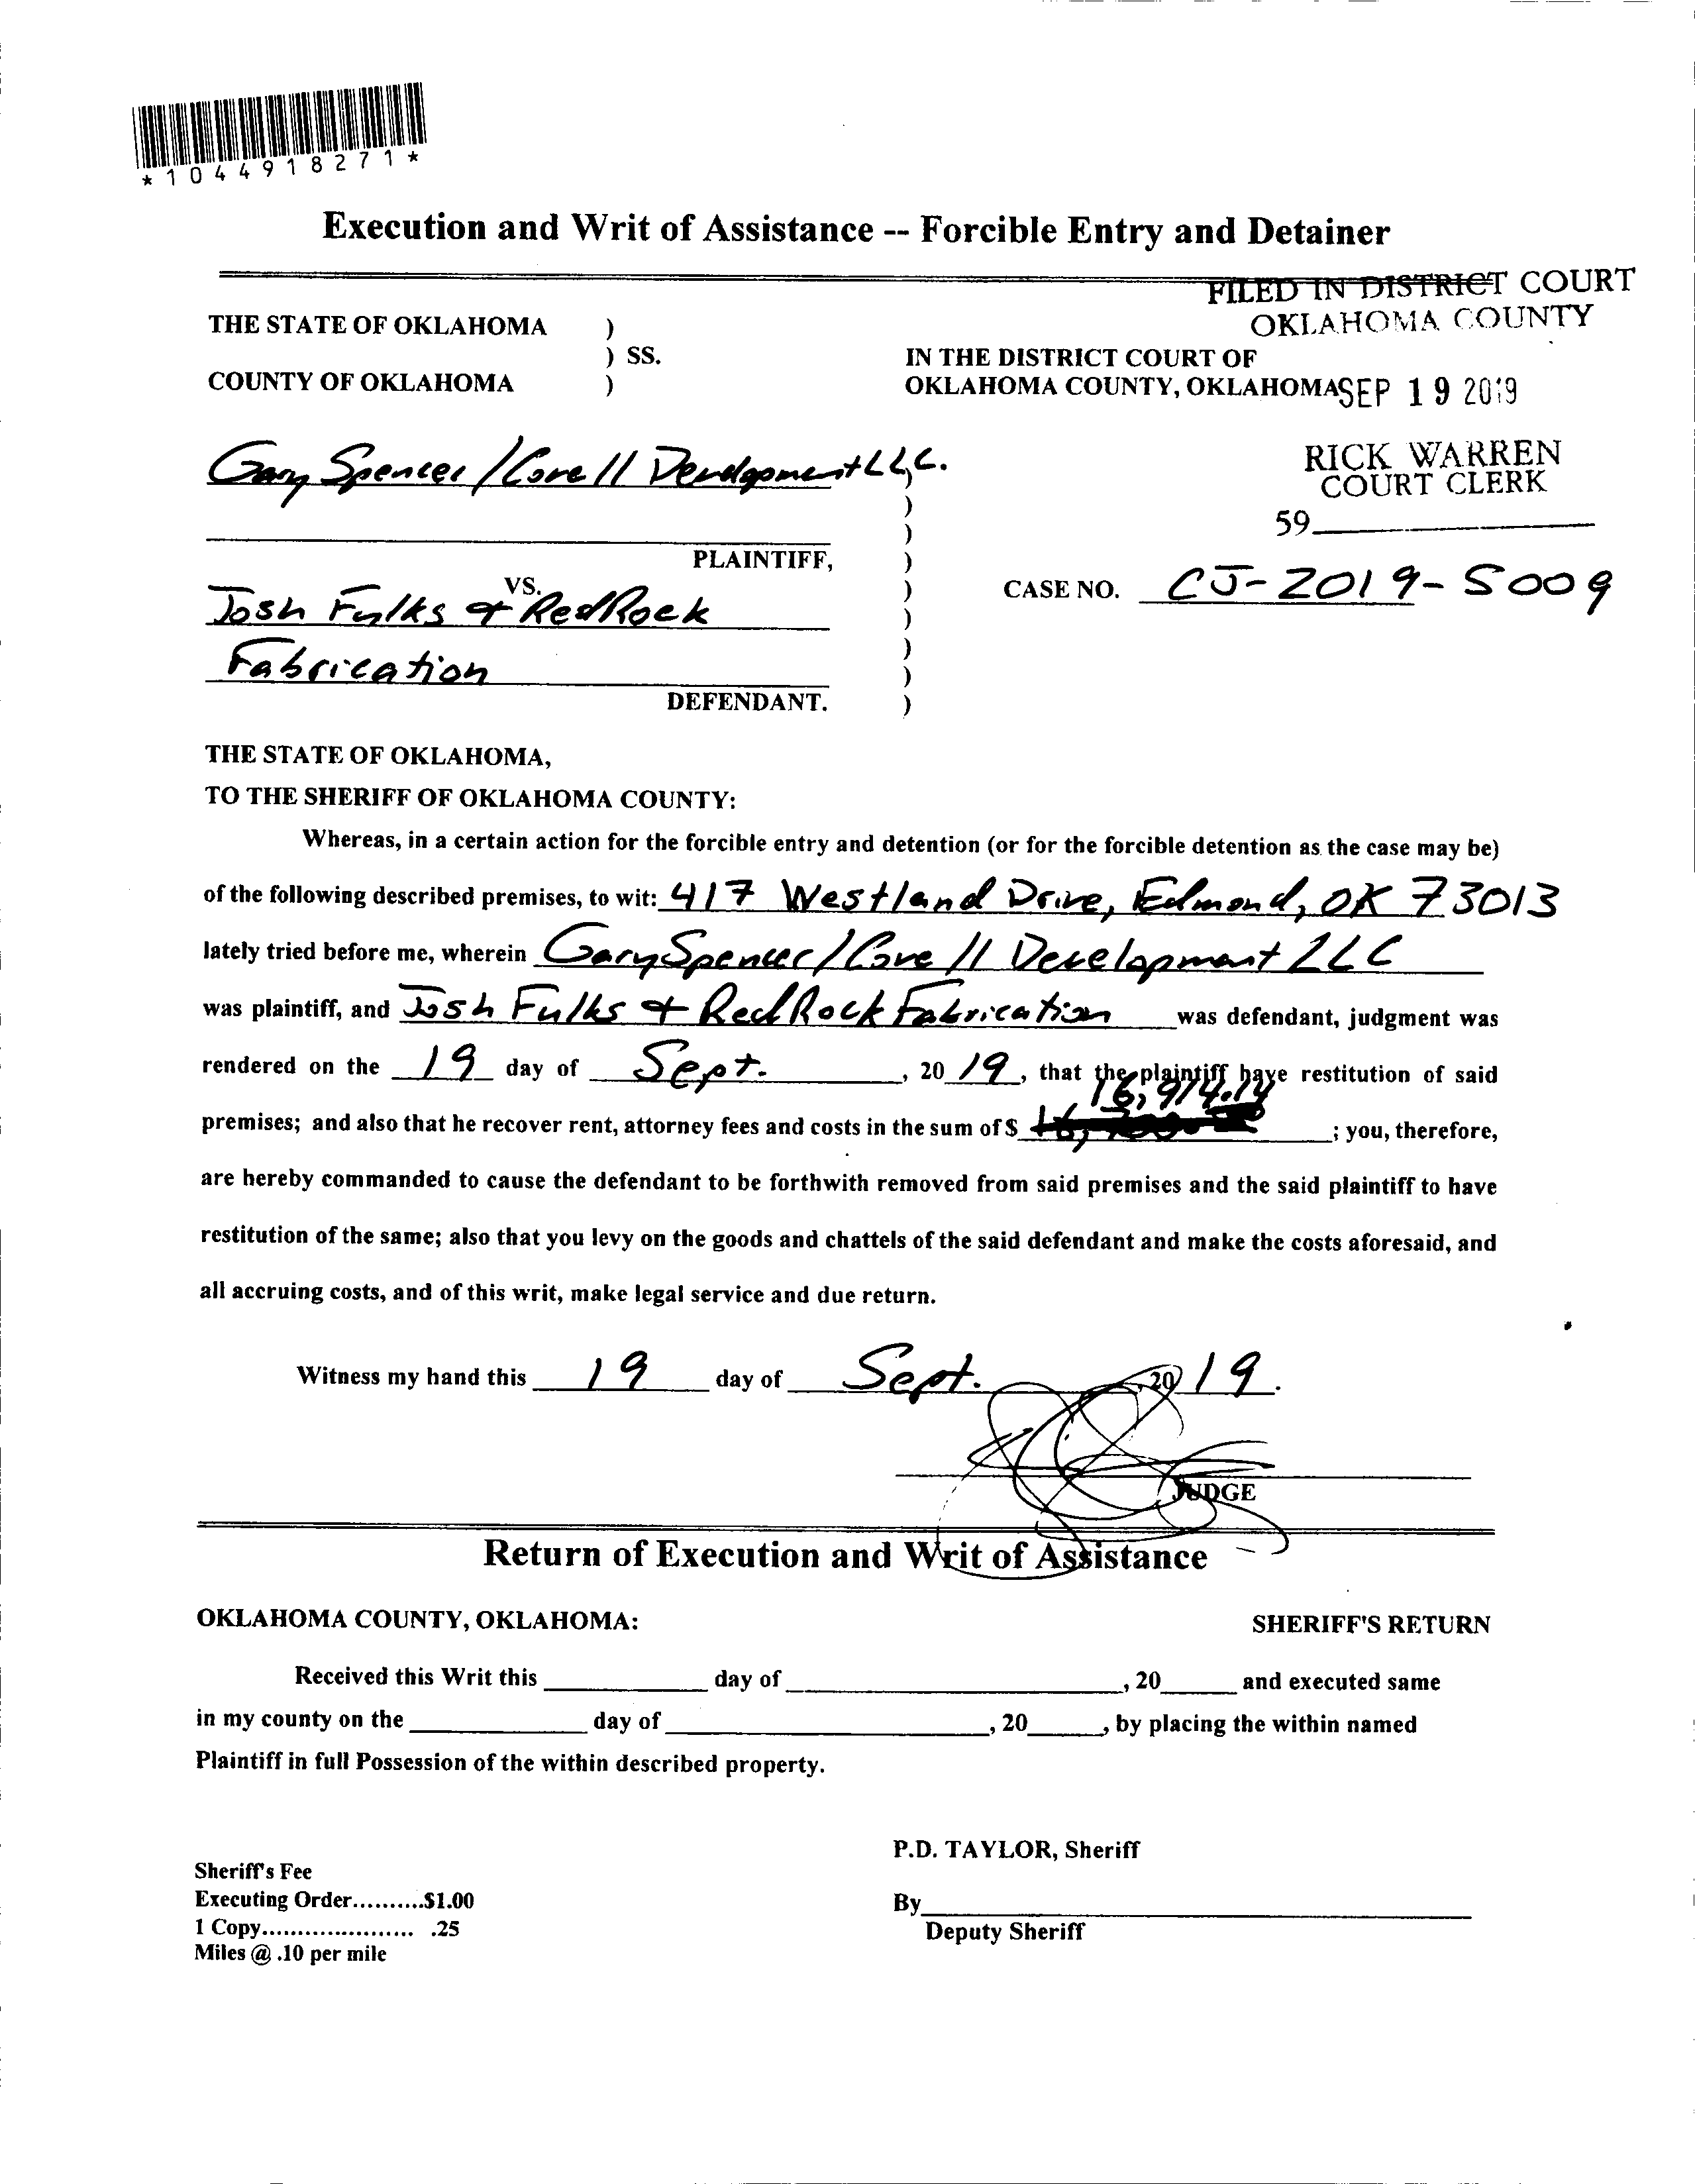 *1044918271*
Execution and Writ of Assistance -- Forcible Entry and Detainer
FILED IN DISTRICT COURT
OKLAHOMA COUNTY
THE STATE OF OKLAHOMA )
) SS.
COUNTY OF OKLAHOMA )
IN THE DISTRICT COURT OF
OKLAHOMA COUNTY, OKLAHOMA
SEP 19 2019
RICK WARREN
COURT CLERK
59
Gary Spencer / Cove 11 Development LLC.
PLAINTIFF,
VS.
CASE NO. CJ-2019-5009
Josh Fulks & RedRock
Fabrication
DEFENDANT.
THE STATE OF OKLAHOMA,
TO THE SHERIFF OF OKLAHOMA COUNTY:
Whereas, in a certain action for the forcible entry and detention (or for the forcible detention as the case may be)
of the following described premises, to wit: 417 Westland Drive, Edmond, OK 73013
lately tried before me, wherein Gary Spencer / Cove 11 Development LLC
was plaintiff, and Josh Fulks & Red Rock Fabrication was defendant, judgment was
rendered on the 19 day of Sept. , 20 19, that the plaintiff have restitution of said
16,914.14
premises; and also that he recover rent, attorney fees and costs in the sum of $ ; you, therefore,
are hereby commanded to cause the defendant to be forthwith removed from said premises and the said plaintiff to have
restitution of the same; also that you levy on the goods and chattels of the said defendant and make the costs aforesaid, and
all accruing costs, and of this writ, make legal service and due return.
Witness my hand this 19 day of Sept. , 20 19.
JUDGE
Return of Execution and Writ of Assistance
OKLAHOMA COUNTY, OKLAHOMA: SHERIFF'S RETURN
Received this Writ this ________ day of ________, 20____ and executed same
in my county on the ________ day of ________, 20____, by placing the within named
Plaintiff in full Possession of the within described property.
P.D. TAYLOR, Sheriff
Sheriff's Fee
Executing Order..........$1.00
1 Copy..................... .25
Miles @ .10 per mile
By
Deputy Sheriff